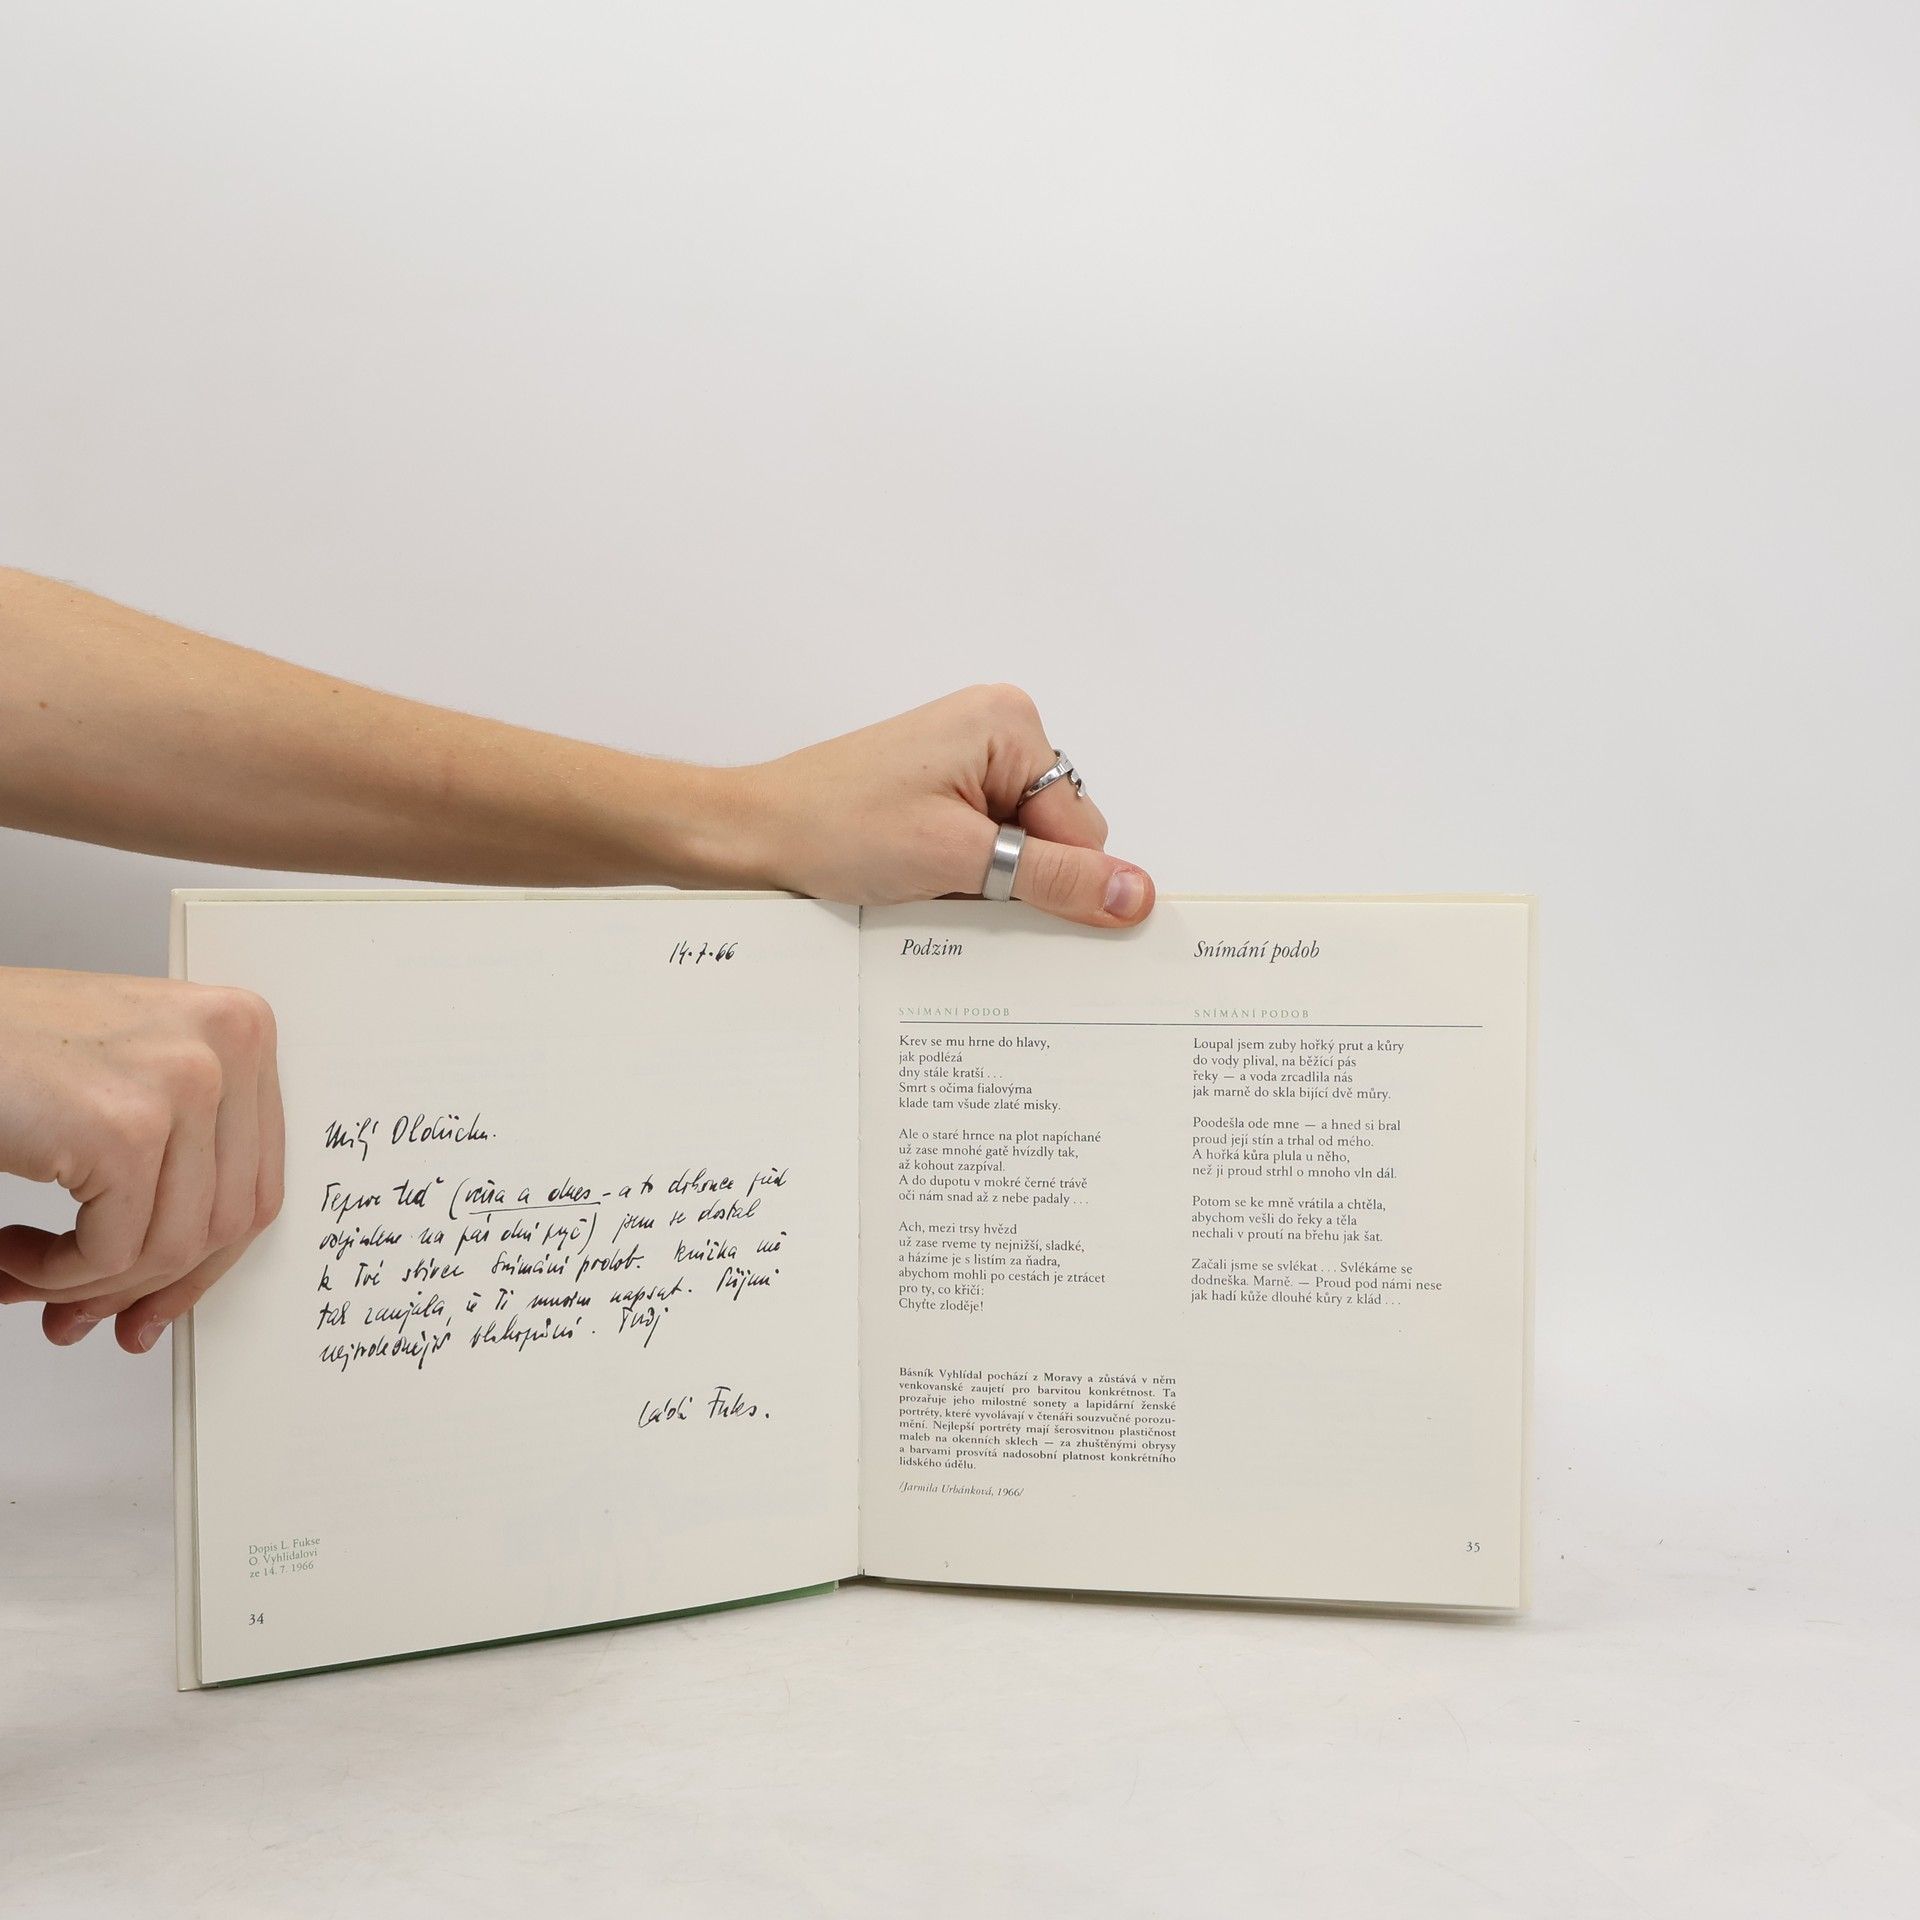 14.7.66
Milý Oldřichu.
Teprve teď (včera a dnes - a to dokonce
na pár dní pryč) jsem se dostal
k Tvé sbírce Snímání podob. Knížka mě
tak zaujala, že Ti musím napsat. Přijmi
nejsrdečnější blahopřání. Tvůj
Láďa Fuks.
Dopis L. Fukse
O. Vyhlídalovi
ze 14. 7. 1966
34
Podzim
SNÍMÁNÍ PODOB
Krev se mu hrne do hlavy,
jak podlézá
dny stále kratší . . .
Smrt s očima fialovýma
klade tam všude zlaté misky.
Ale o staré hrnce na plot napíchané
už zase mnohé gatě hvízdly tak,
až kohout zazpíval.
A do dupotu v mokré černé trávě
oči nám snad až z nebe padaly . . .
Ach, mezi trsy hvězd
už zase rveme ty nejnižší, sladké,
a házíme je s listím za ňadra,
abychom mohli po cestách je ztrácet
pro ty, co křičí:
Chyťte zloděje!
Básník Vyhlídal pochází z Moravy a zůstává v něm
venkovanské zaujetí pro barvitou konkrétnost. Ta
prozařuje jeho milostné sonety a lapidární ženské
portréty, které vyvolávají v čtenáři souzvučné porozu-
mění. Nejlepší portréty mají šerosvitnou plastičnost
maleb na okenních sklech — za zhuštěnými obrysy
a barvami prosvítá nadosobní platnost konkrétního
lidského údělu.
/Jarmila Urbánková, 1966/
Snímání podob
SNÍMÁNÍ PODOB
Loupal jsem zuby hořký prut a kůry
do vody plival, na běžící pás
řeky — a voda zrcadlila nás
jak marně do skla bijící dvě můry.
Poodešla ode mne — a hned si bral
proud její stín a trhal od mého.
A hořká kůra plula u něho,
než ji proud strhl o mnoho vln dál.
Potom se ke mně vrátila a chtěla,
abychom vešli do řeky a těla
nechali v proutí na břehu jak šat.
Začali jsme se svlékat . . . Svlékáme se
dodneška. Marně. — Proud pod námi nese
jak hadí kůže dlouhé kůry z klád . . .
35